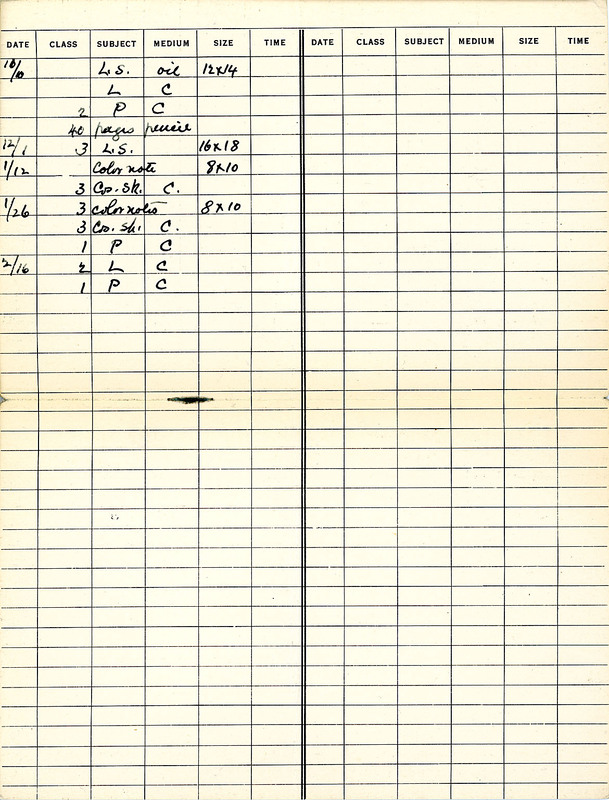 DATE CLASS SUBJECT MEDIUM SIZE TIME DATE CLASS SUBJECT MEDIUM SIZE TIME
10/10 L.S. oil 12x14
L C
2 P C
40 pages pencil
12/1 3 L.S. 16x18
1/12 Color note 8x10
3 Co. Sk. C.
1/26 3 color notes 8x10
3 Co. Sk. C.
1 P C
2/16 2 L C
1 P C